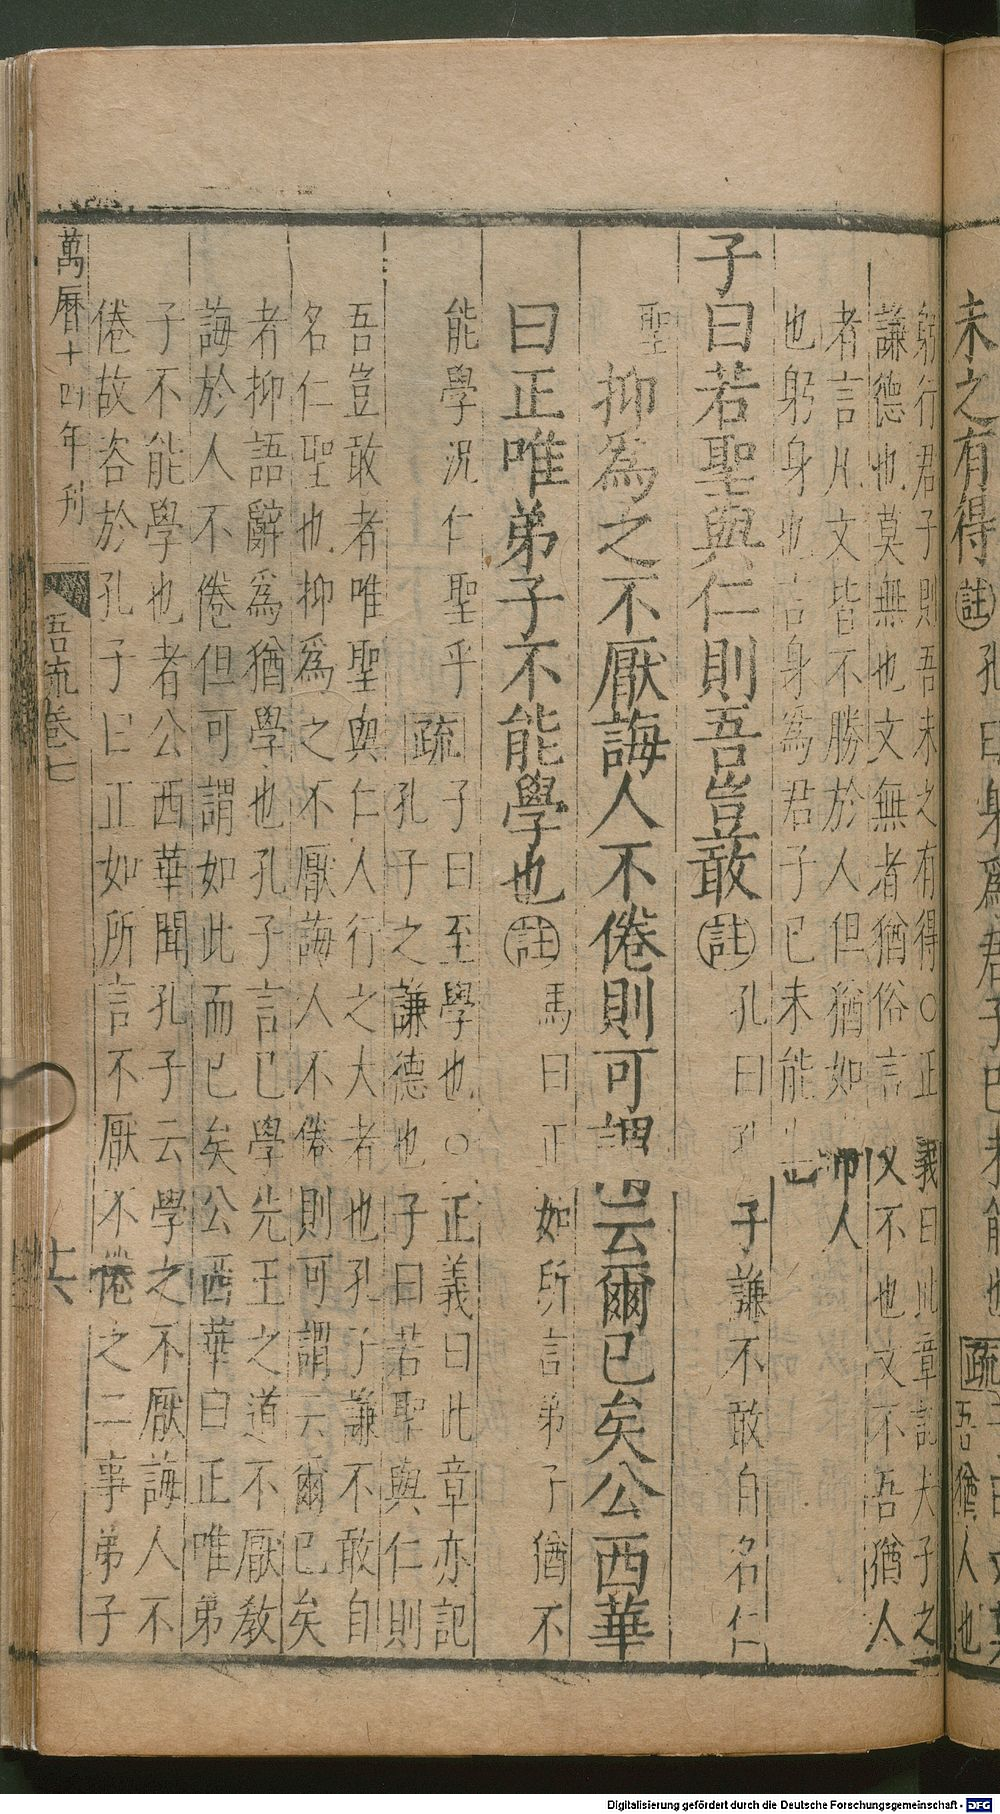 未之有得 註 孔曰身爲君子己未能也 疏
吾猶人也
躬行君子則吾未之有得○正義曰此章記夫子之
謙德也莫無也文無者猶俗言文不也文不吾猶人
者言凡文皆不勝於人但猶如常人
也躬身也言身爲君子己未能也
子曰若聖與仁則吾豈敢 註 孔曰孔子謙不敢自名仁
聖
抑爲之不厭誨人不倦則可謂云爾已矣公西華
曰正唯弟子不能學也 註 馬曰正如所言弟子猶不
能學況仁聖乎 疏 子曰至學也○正義曰此章亦記
孔子之謙德也子曰若聖與仁則
吾豈敢者唯聖與仁人行之大者也孔子謙不敢自
名仁聖也抑爲之不厭誨人不倦則可謂云爾已矣
者抑語辭爲猶學也孔子言已學先王之道不厭教
誨於人不倦但可謂如此而已矣公西華曰正唯弟
子不能學也者公西華聞孔子云學之不厭誨人不
倦故咨於孔子曰正如所言不厭不倦之二事弟子
萬曆十四年刊 語疏卷七 十六
Digitalisierung gefördert durch die Deutsche Forschungsgemeinschaft - DFG